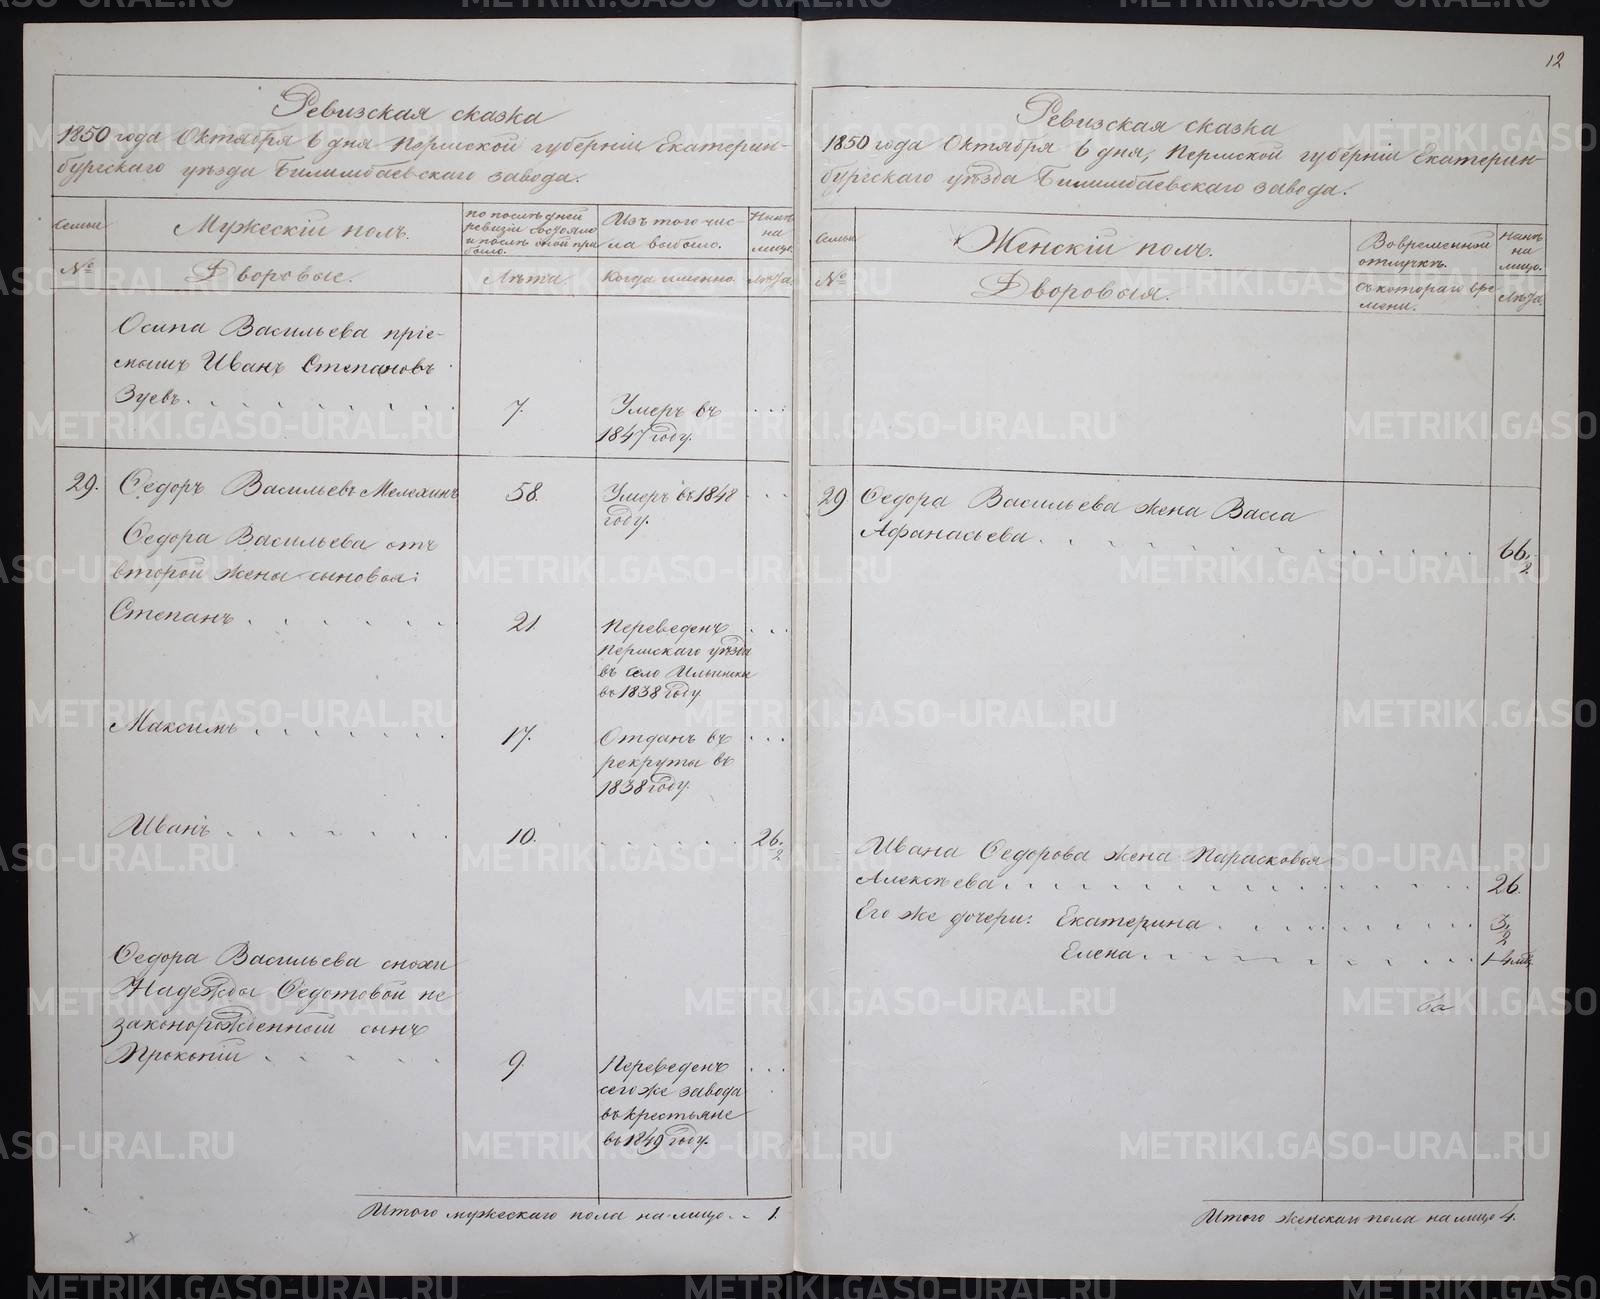 12
Ревизская сказка
1850 года Октября 6 дня Пермской губерніи Екатерин-
бургскаго уѣзда Билимбаевскаго завода.
Семьи
Мужескій полъ.
по послѣдней ревизіи состояло и послѣ оной при было.
Изъ того чис-
ла выбыло.
Нынѣ на лицо.
№
Дворовые.
Лѣта.
Когда именно.
Лѣта.
Осипа Васильева пріе-
мышъ Иванъ Степановъ
Зуевъ. 7. Умеръ въ
1847 году.
29. Ѳедоръ Васильевъ Мелехинъ 58. Умеръ въ 1848
году.
Ѳедора Васильева отъ
второй жены сыновья:
Степанъ 21. Переведенъ
Пермскаго уѣзда
въ село Ильинское
въ 1838 году
Максимъ 17. Отданъ въ
рекруты въ
1838 году.
Иванъ 10. 26.
2
Ѳедора Васильева снохи
Надежды Ѳедотовой не
законорожденной сынъ
Прокопій 9. Переведенъ
сего же завода
въ крестьяне
въ 1849 году.
Итого мужескаго пола на-лицо 1.
Ревизская сказка
1850 года Октября 6 дня, Пермской губерніи Екатерин-
бургскаго уѣзда Билимбаевскаго завода.
Семьи
Женскій полъ.
Во временной
отлучкѣ.
Нынѣ на лицо.
№
Дворовыя.
съ котораго вре-
мени.
Лѣта
29 Ѳедора Васильева жена Васса
Афанасьева. 66.
2.
Ивана Ѳедорова жена Парасковья
Алексѣева. 26.
Его же дочери: Екатерина 3.
2
Елена 1-4 мѣс.
Итого женскаго пола на лицо 4.
METRIKI.GASO-URAL.RU